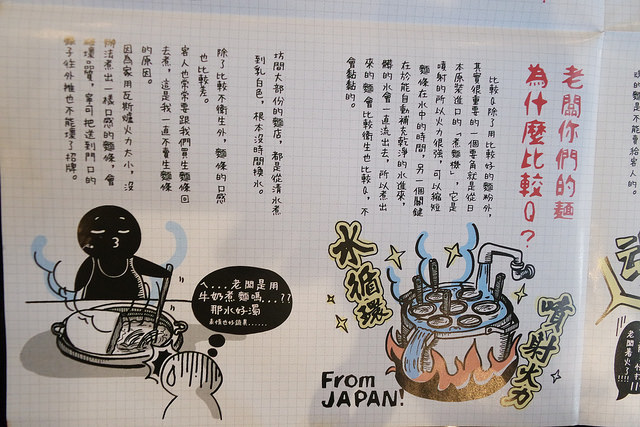 老闆你們的麵
為什麼比較Q?
比較Q除了用比較好的麵粉外,
其實很重要的一個要角就是從日
本原裝進口的「煮麵機」,它是
噴射的所以火力很強,可以縮短
麵條在水中的時間,另一個關鍵
在於能自動補充乾淨的水進來,
髒的水會一直流出去,所以煮出
來的麵會比較衛生也比較Q,不
會黏黏的。
坊間大部份的麵店,都是從清水煮
到乳白色,根本沒時間換水。
除了比較不衛生外,麵條的口感
也比較差。
客人也常常要跟我們買生麵條回
去煮,這是我一直不賣生麵條
的原因。
因為家用瓦斯爐火力太小,沒
辦法煮出一樣口感的麵條,會
破壞品質,寧可把送到門口的
銀子往外推也不能壞了招牌。
水循環
噴射火力
From
JAPAN!
ㄟ...老闆是用
牛奶煮麵嗎...??
那水好濁
老闆著火了!!!!